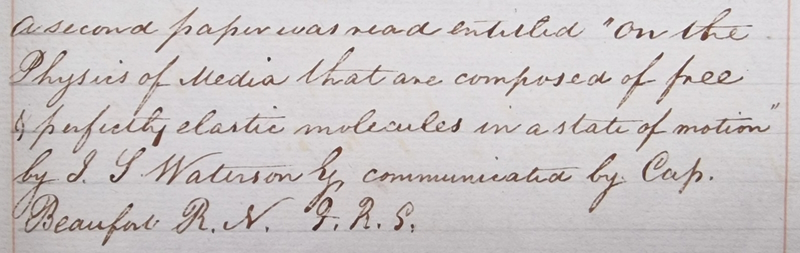 A second paper was read entitled "On the
Physics of Media that are composed of free
& perfectly elastic molecules in a state of motion"
by J. S Waterson Esq communicated by Cap.
Beaufort R. N. F. R. S.